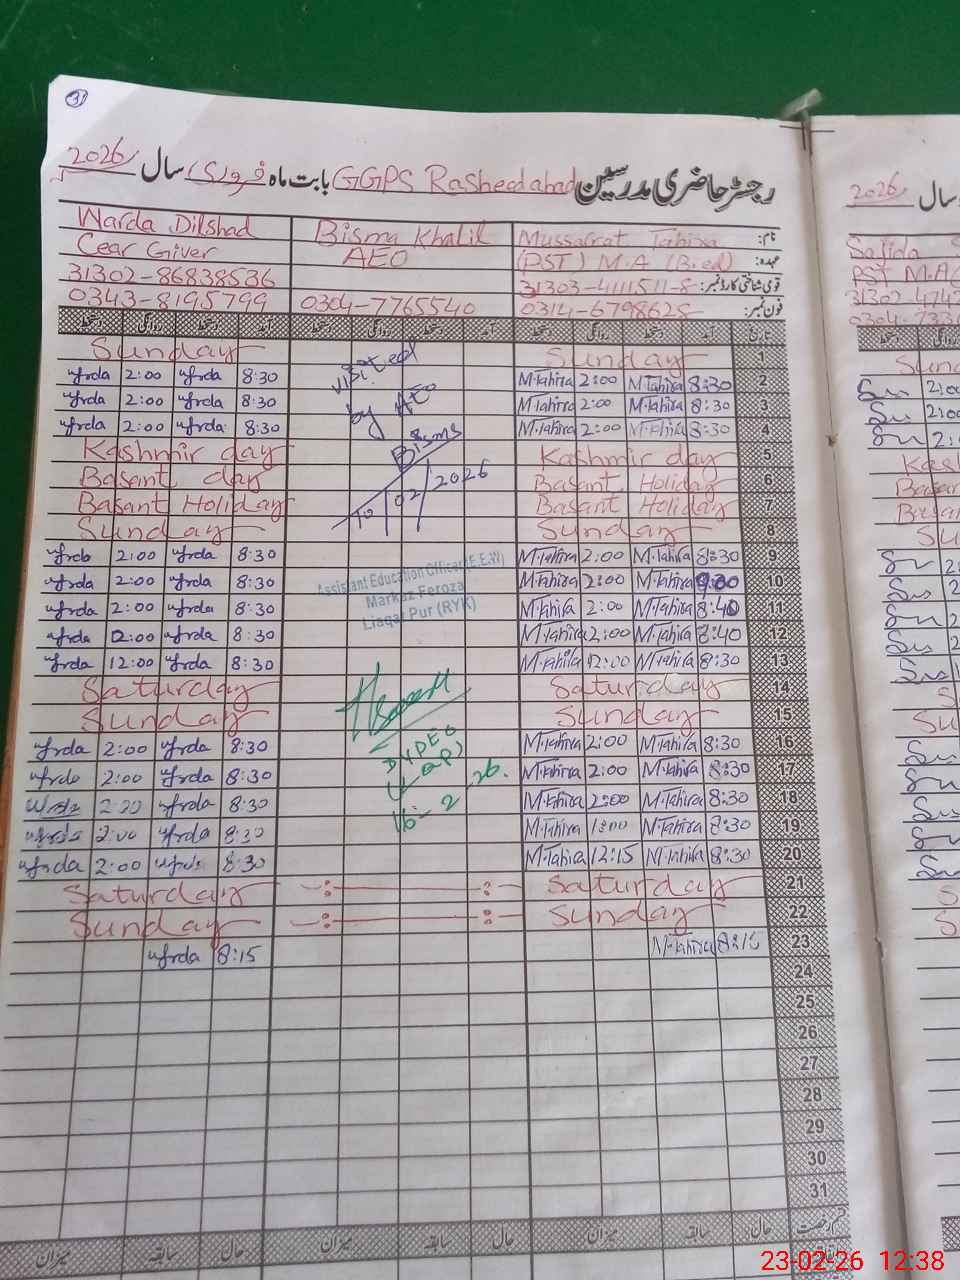 31
رجسٹر حاضری مدرسین GGPS Rasheedabad بابت ماہ فروری سال 2026
نام: Mussarrat Tahira
Bisma Khalil
Warda Dilshad
عہدہ: (PST) M.A (B.ed)
AEO
Cear Giver
قومی شناختی کارڈ نمبر: 31303-4111511-8
31302-86838536
فون نمبر: 0314-6798628
0304-7765540
0343-8195799
تاریخ آمد دستخط روانگی دستخط آمد دستخط روانگی دستخط آمد دستخط روانگی دستخط
1 Sunday Sunday
2 8:30 M.Tahira 2:00 M.Tahira 8:30 wrda 2:00 wrda
3 8:30 M.Tahira 2:00 M.Tahira 8:30 wrda 2:00 wrda
4 8:30 M.Tahira 2:00 M.Tahira 8:30 wrda 2:00 wrda
5 Kashmir day Kashmir day
6 Basant Holiday Basant day
7 Basant Holiday Basant Holiday
8 Sunday Sunday
9 8:30 M.Tahira 2:00 M.Tahira 8:30 wrda 2:00 wrda
10 9:00 M.Tahira 2:00 M.Tahira 8:30 wrda 2:00 wrda
11 8:40 M.Tahira 2:00 M.Tahira 8:30 wrda 2:00 wrda
12 8:40 M.Tahira 2:00 M.Tahira 8:30 wrda 2:00 wrda
13 8:30 M.Tahira 12:00 M.Tahira 8:30 wrda 12:00 wrda
14 Saturday Saturday
15 Sunday Sunday
16 8:30 M.Tahira 2:00 M.Tahira 8:30 wrda 2:00 wrda
17 8:30 M.Tahira 2:00 M.Tahira 8:30 wrda 2:00 wrda
18 8:30 M.Tahira 2:00 M.Tahira 8:30 wrda 2:00 wrda
19 8:30 M.Tahira 1:00 M.Tahira 8:30 wrda 2:00 wrda
20 8:30 M.Tahira 12:15 M.Tahira 8:30 wrda 2:00 wrda
21 Saturday Saturday
22 Sunday Sunday
23 8:15 M.Tahira 8:15 wrda
24
25
26
27
28
29
30
31
visited
by AEO
Bisma
10/02/2026
Assistant Education Officer (E.E.W)
Markaz Feroza
Liaqat Pur (RYK)
DyDEO
(LQP)
16-2-26.
حال سابقہ میزان حال سابقہ میزان حال سابقہ میزان
سال 2026
Sajida
PST M.A
31302-474
0304-733
23-02-26 12:38